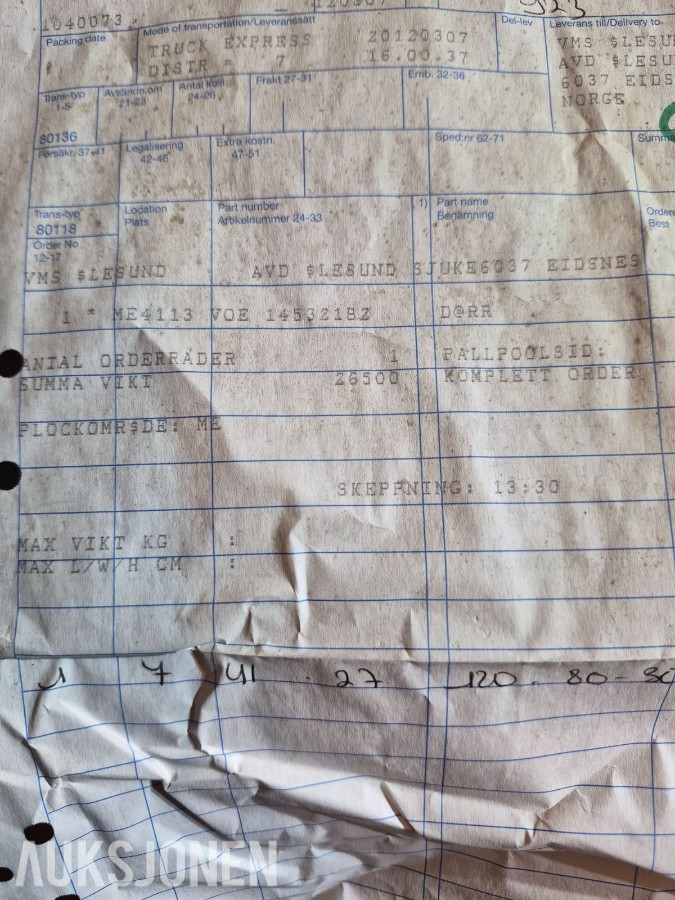 1040073
Packing date
Mode of transportation/Leveranssätt
Del-lev
Leverans till/Delivery to
TRUCK EXPRESS 20120307
DISTR = 7 16.00.37
VMS $LESU
AVD $LESU
6037 EIDS
NORGE
Trans-typ
1-5
80136
Avsändn.om
21-23
Antal kolli
24-26
Frakt 27-31
Emb. 32-36
Försäkr. 37-41
Legalisering
42-46
Extra kostn.
47-51
Sped.nr 62-71
Summa
Trans-typ
80118
Location
Plats
Part number
Artikelnummer 24-33
1)
Part name
Benämning
Order
Best
Order No
12-17
VMS $LESUND AVD $LESUND SJUKE6037 EIDSNES
1 * ME4113 VOE 14532182 D@RR
ANTAL ORDERRADER 1 PALLPOOLSID:
SUMMA VIKT 26500 KOMPLETT ORDER
PLOCKOMR$DE: ME
SKEPPNING: 13:30
MAX VIKT KG :
MAX L/W/H CM :
1 7 41 . 27 120 - 80 - 30
AUKSJONEN